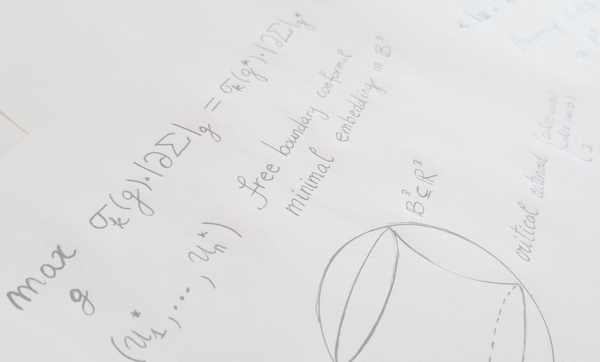 max σₖ(g)·|∂Σ|_g = σₖ(g*)·|∂Σ|_g*
g
(u₁*, ..., uₙ*)
free boundary conformal
minimal embedding in B³
B³ ⊆ ℝ³
critical